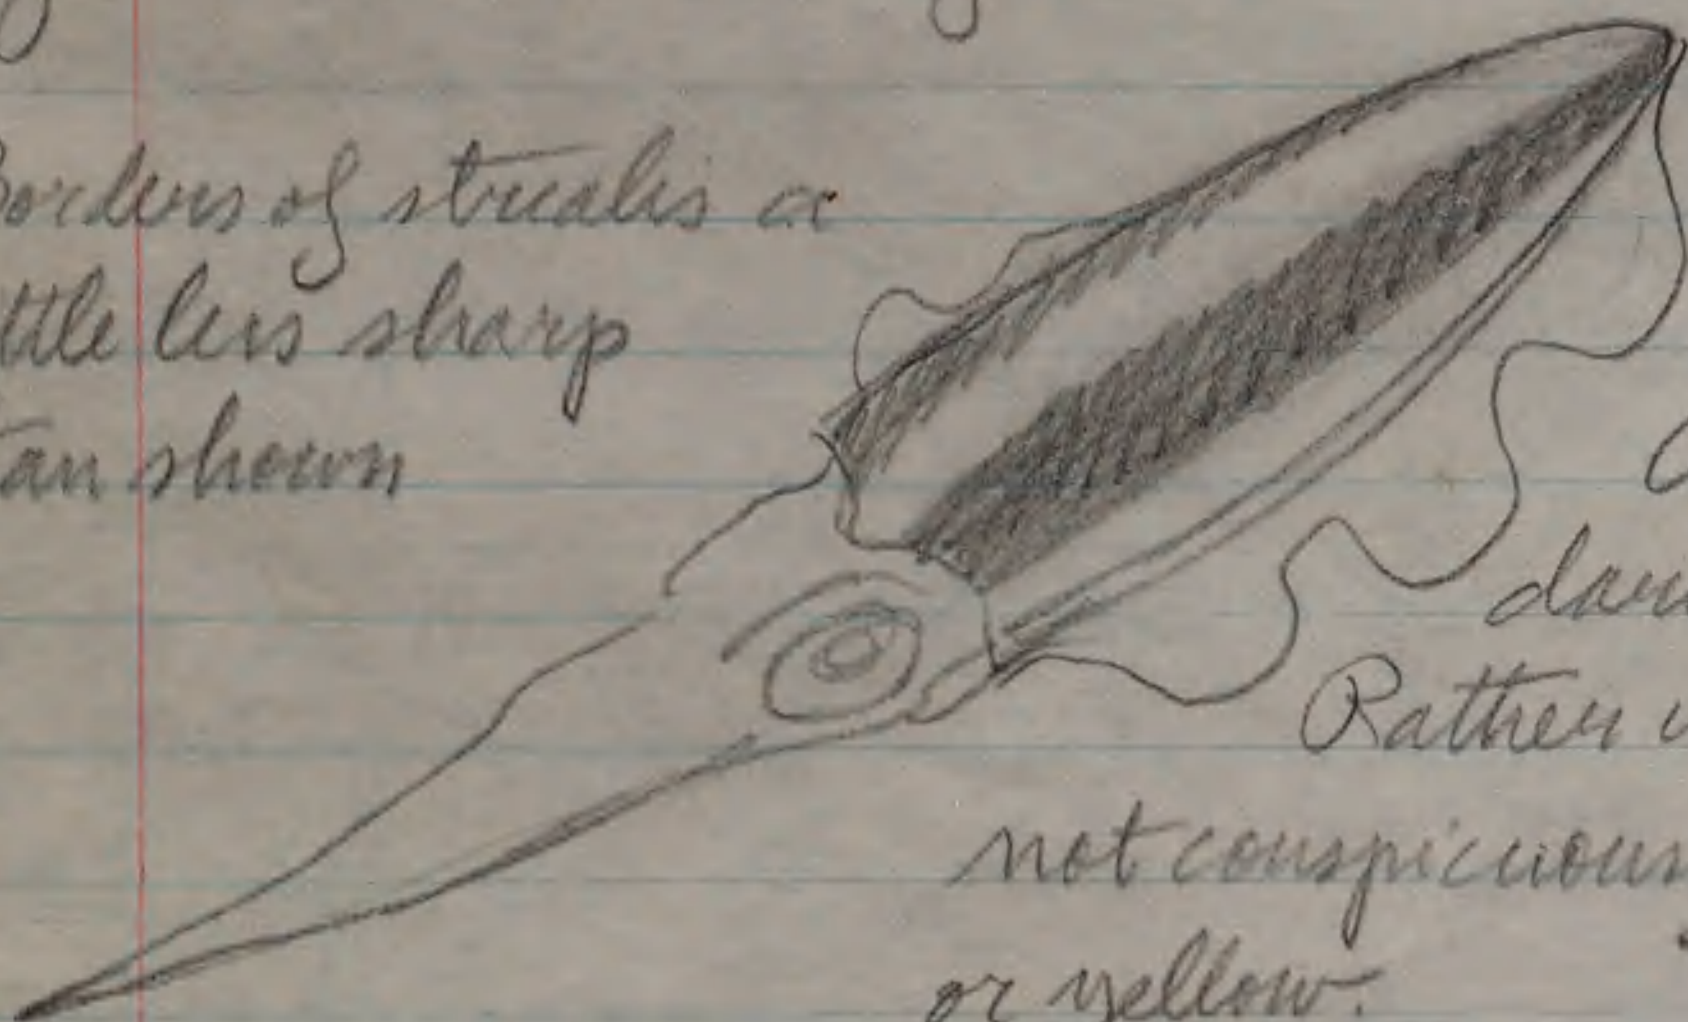 Borders of streaks a
ttle less sharp
tan shown
dar
Rather
not conspicuous
or yellow.